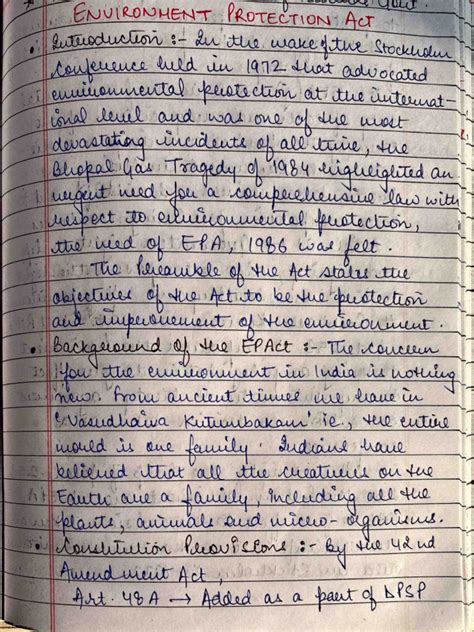 Govt.
ENVIRONMENT PROTECTION ACT
• Introduction :- In the wake of the Stockholm
Conference held in 1972 that advocated
environmental protection at the internat-
ional level and was one of the most
devastating incidents of all time, the
Bhopal Gas Tragedy of 1984 highlighted an
urgent need for a comprehensive law with
respect to environmental protection,
the need of EPA, 1986 was felt.
The Preamble of the Act states the
objectives of the Act to be the protection
and improvement of the environment.
• Background of the EPAct :- The concern
for the environment in India is nothing
new. From ancient times we have in
'Vasudhaiva Kutumbakam' ie, the entire
world is one family. Indians have
believed that all the creatures on the
Earth are a family, including all the
plants, animals and micro-organisms.
• Constitution Provisions :- By the 42nd
Amendment Act,
Art. 48A → Added as a part of DPSP